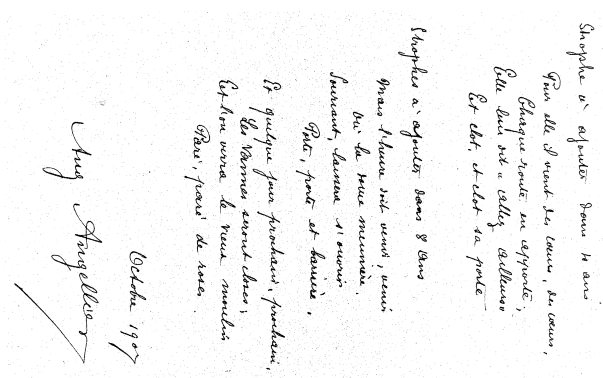 Strophe à ajouter dans 4 ans
Pour elle il vient des cœurs, des cœurs,
Chaque route en apporte,
Elle leur dit « allez ailleurs »
Et clot, et clot sa porte
Strophes à ajouter dans 8 ans
Mais l'heure doit venir, venir
Où la meunière,
Souriant, laissera s'ouvrir
Porte, porte et barrière.
Et quelque jour prochain, prochain,
Les Vannes seront closes,
Et l'on verra le vieux moulin
Paré, paré de roses.
Octobre 1907
Aug Angellier